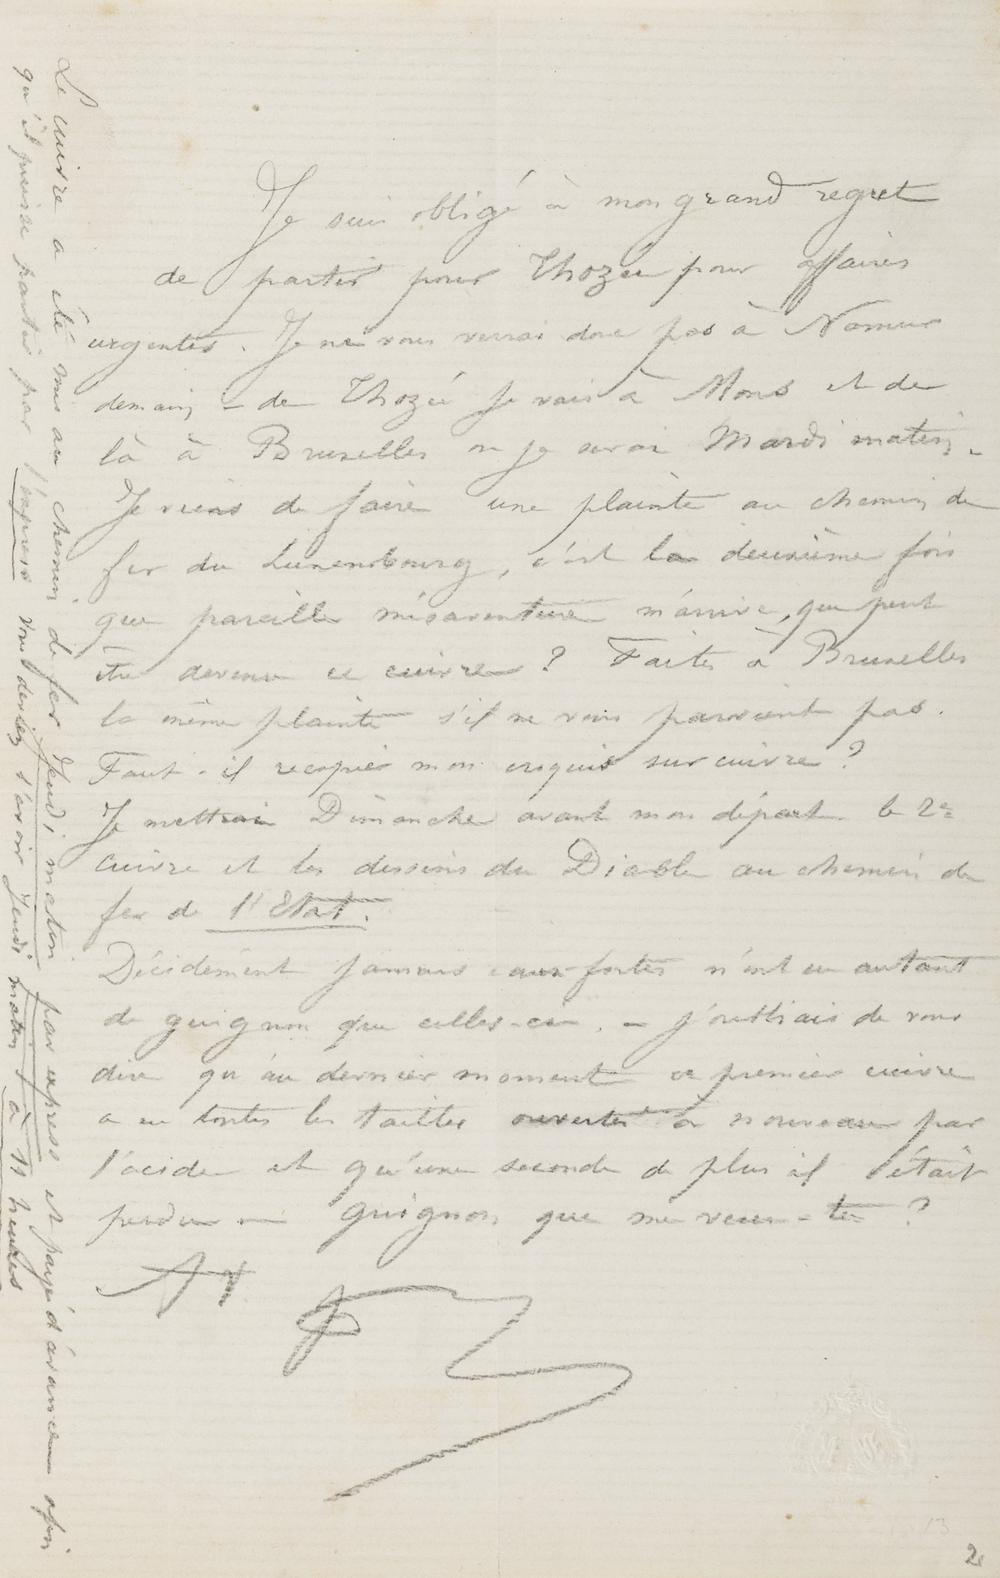 Je suis obligé à mon grand regret
de partir pour Thozée pour affaires
urgentes. Je ne vous verrai donc pas à Namur
demain – de Thozée je vais à Mons et de
là à Bruxelles où je serai Mardi matin.
Je viens de faire une plainte au chemin de
fer du Luxembourg, c'est la deuxième fois
que pareille mésaventure m'arrive, que peut
être devenu ce cuivre ? Faites à Bruxelles
la même plainte s'il ne vous parvient pas.
Faut-il recopier mon croquis sur cuivre ?
Je mettrai Dimanche avant mon départ le 2e
cuivre et les dessins du Diable au chemin de
fer de l'Etat.
Décidément jamais eaux-fortes n'ont eu autant
de guignon que celles-ci. – J'oubliais de vous
dire qu'au dernier moment ce premier cuivre
a eu toutes les tailles ouvertes à nouveau par
l'acide et qu'une seconde de plus il était
perdu – Guignon que me veux-tu ?
Le cuivre a été mis au chemin de fer Jeudi matin par express et payé d'avance afin
qu'il puisse partir par l'express vous deviez l'avoir Jeudi matin à 11 heures
2